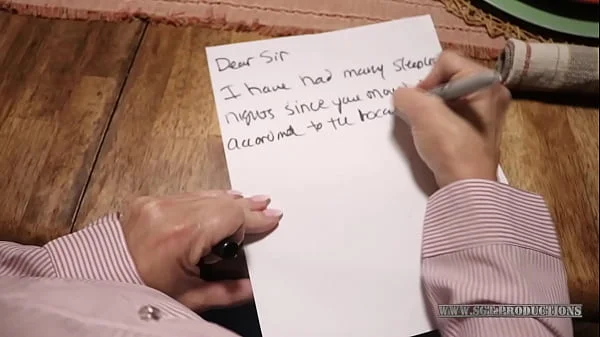 Dear Sir
I have had many sleepless
nights since you
according to the
WWW.SGTPRODUCTIONS